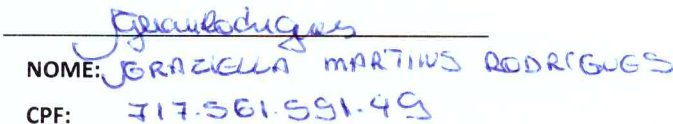 GraziRodrigues
NOME: GRAZIELLA MARTINS RODRIGUES
CPF: 717.561.591-49